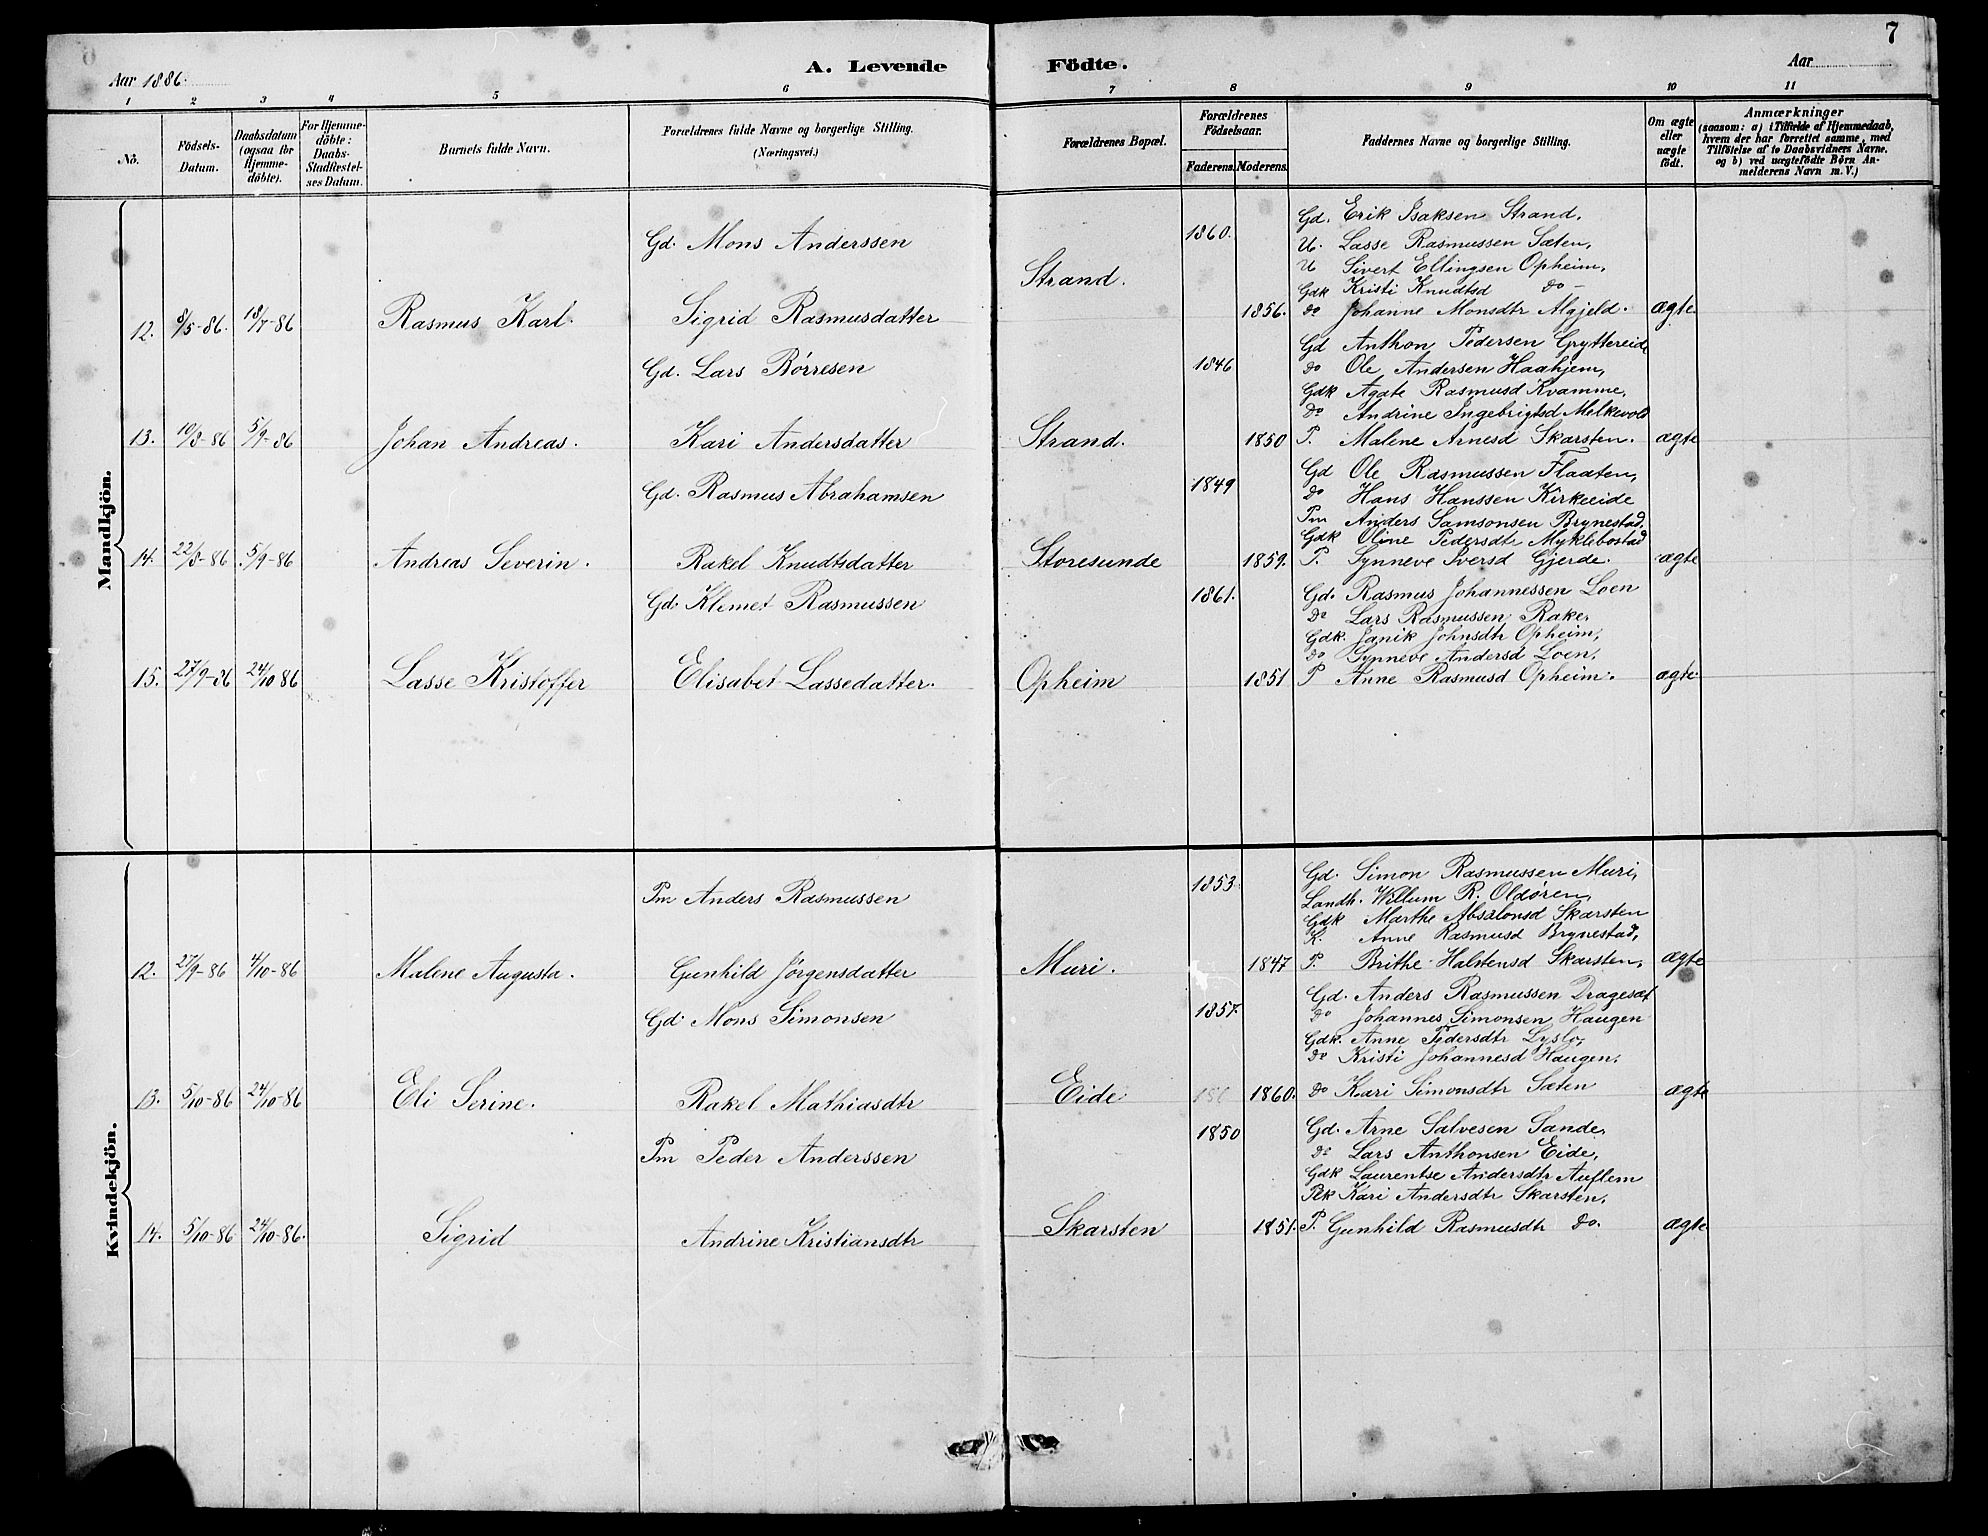 7
Aar 1886.
A. Levende Födte.
Aar
1 2 3 4 5 6 7 8 9 10 11
No.
Födsels-Datum.
Daabsdatum (ogsaa for Hjemme-döbte).
For Hjemme-döbte: Daabs-Stadfæstel-ses Datum.
Barnets fulde Navn.
Forældrenes fulde Navne og borgerlige Stilling.
(Næringsvei.)
Forældrenes Bopæl.
Forældrenes Födselsaar.
Faderens. Moderens.
Faddernes Navne og borgerlige Stilling.
Om ægte eller uægte födt.
Anmærkninger
(saasom: a) i Tilfælde af Hjemmedaab,
hvem der har forrettet samme, med
Tilföielse af to Daabsvidners Navne.
og b) ved uægtefödte Börn An-
melderens Navn m. V.)
Mandkjön.
Gd. Mons Anderssen
1860.
Gd. Erik Isaksen Strand.
U. Lasse Rasmussen Sæten,
U Sivert Ellingsen Opheim,
Strand.
Gdk Kristi Knudtsd do -
12. 8/5-86. 18/7-86 Rasmus Karl. Sigrid Rasmusdatter 1856. do Johanne Monsdtr Mgjeld. ægte
Gd. Lars Börresen
1846
Gd Anthon Pedersen Gryttereide
do Ole Andersen Haahjem,
Gdk Agate Rasmusd Kvamme,
do Andrine Ingebrigtsd Melkevold
13. 10/8-86 5/9-86 Johan Andreas. Kari Andersdatter Strand. 1850 P. Malene Arnesd Skarsten. ægte
Gd. Rasmus Abrahamsen
1849
Gd Ole Rasmussen Flaaten,
do Hans Hanssen Kirkeeide
Pm Anders Samsonsen Brynestad.
Gdk Oline Pedersdtr Myklebostad
14. 22/8-86. 5/9-86 Andreas Severin. Rakel Knudtsdatter Storesunde 1859. P. Synneve Iversd Gjerde. ægte
Gd. Klemet Rasmussen
1861.
Gd. Rasmus Johannessen Loen
Do Lars Rasmussen Rake,
Gdk. Janik Johnsdtr Opheim,
do Synneve Andersd Loen,
15. 27/9-86 24/10-86 Lasse Kristoffer Elisabet Lassedatter. Opheim 1851 P Anne Rasmusd Opheim. ægte
Kvindekjön.
Pm Anders Rasmussen
1853
Gd. Simon Rasmussen Muri,
Landh. Willum R. Oldören,
Gdk Marthe Absalonsd Skarsten
K. Anne Rasmusd Brynestad,
12. 27/9-86 4/10-86 Malene Augusta. Gunhild Jörgensdatter Muri. 1847 P. Brithe Halstensd Skarsten, ægte
Gd. Mons Simonsen
1857.
Gd. Anders Rasmussen Dragesæt
do Johannes Simonsen Haugen
Gdk. Anne Pedersdtr Lyslo,
do Kristi Johannesd Haugen,
13. 5/10-86 24/10-86 Eli Serine. Rakel Mathiasdtr Eide 1860. do Kari Simonsdtr Sæten ægte
Pm Peder Anderssen
1850
Gd. Arne Salvesen Sande,
do Lars Anthonsen Eide,
Gdk Laurentse Andersdtr Auflem
Pk Kari Andersdtr Skarsten,
14. 5/10-86 24/10-86. Sigrid Andrine Kristiansdtr Skarsten 1851. P. Gunhild Rasmusdtr do. ægte